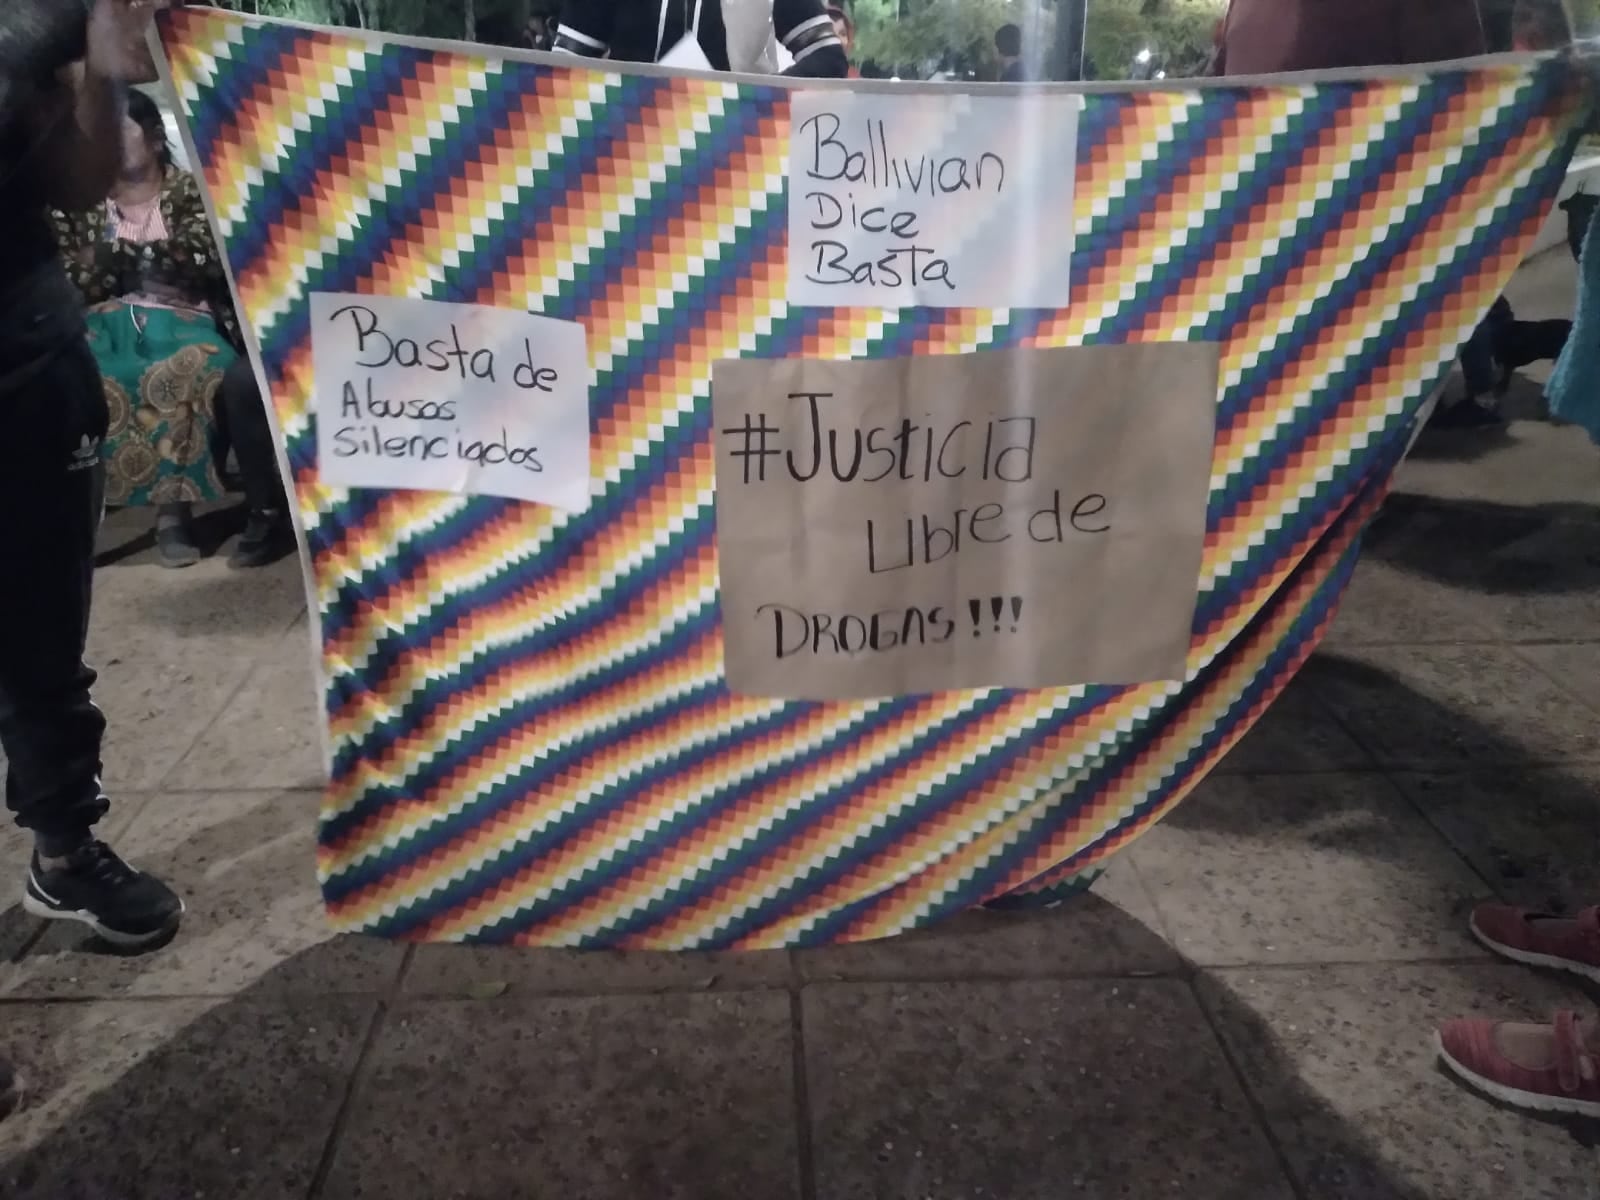 Ballivian
Dice
Basta
Basta de
Abusos
Silenciados
#Justicia
Libre de
DROGAS!!!
adidas